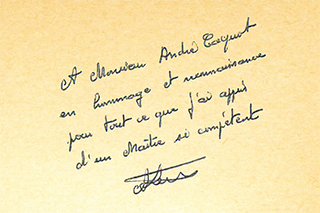 A Monsieur André Caquot
en hommage et reconnaissance
pour tout ce que j'ai appris
d'un Maître si compétent